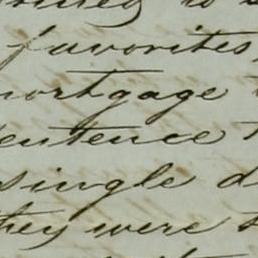 favorites
mortgage
sentence
single
they were